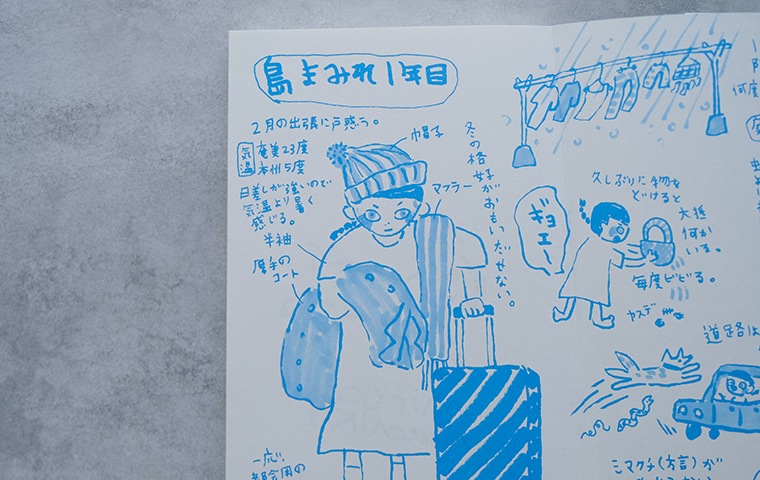 島まみれ1年目
2月の出張に戸惑う。
気温
奄美23度
本州5度
日差しが強いので
気温より暑く
感じる。
半袖
厚手の
コート
帽子
マフラー
冬の格好が
おもいだせない。
一応、
ギョエー
久しぶりに物を
どけると
大抵
何か
いる。
毎度ビビる。
ヤスデ
道路は
シマクチ(方言)が
何度